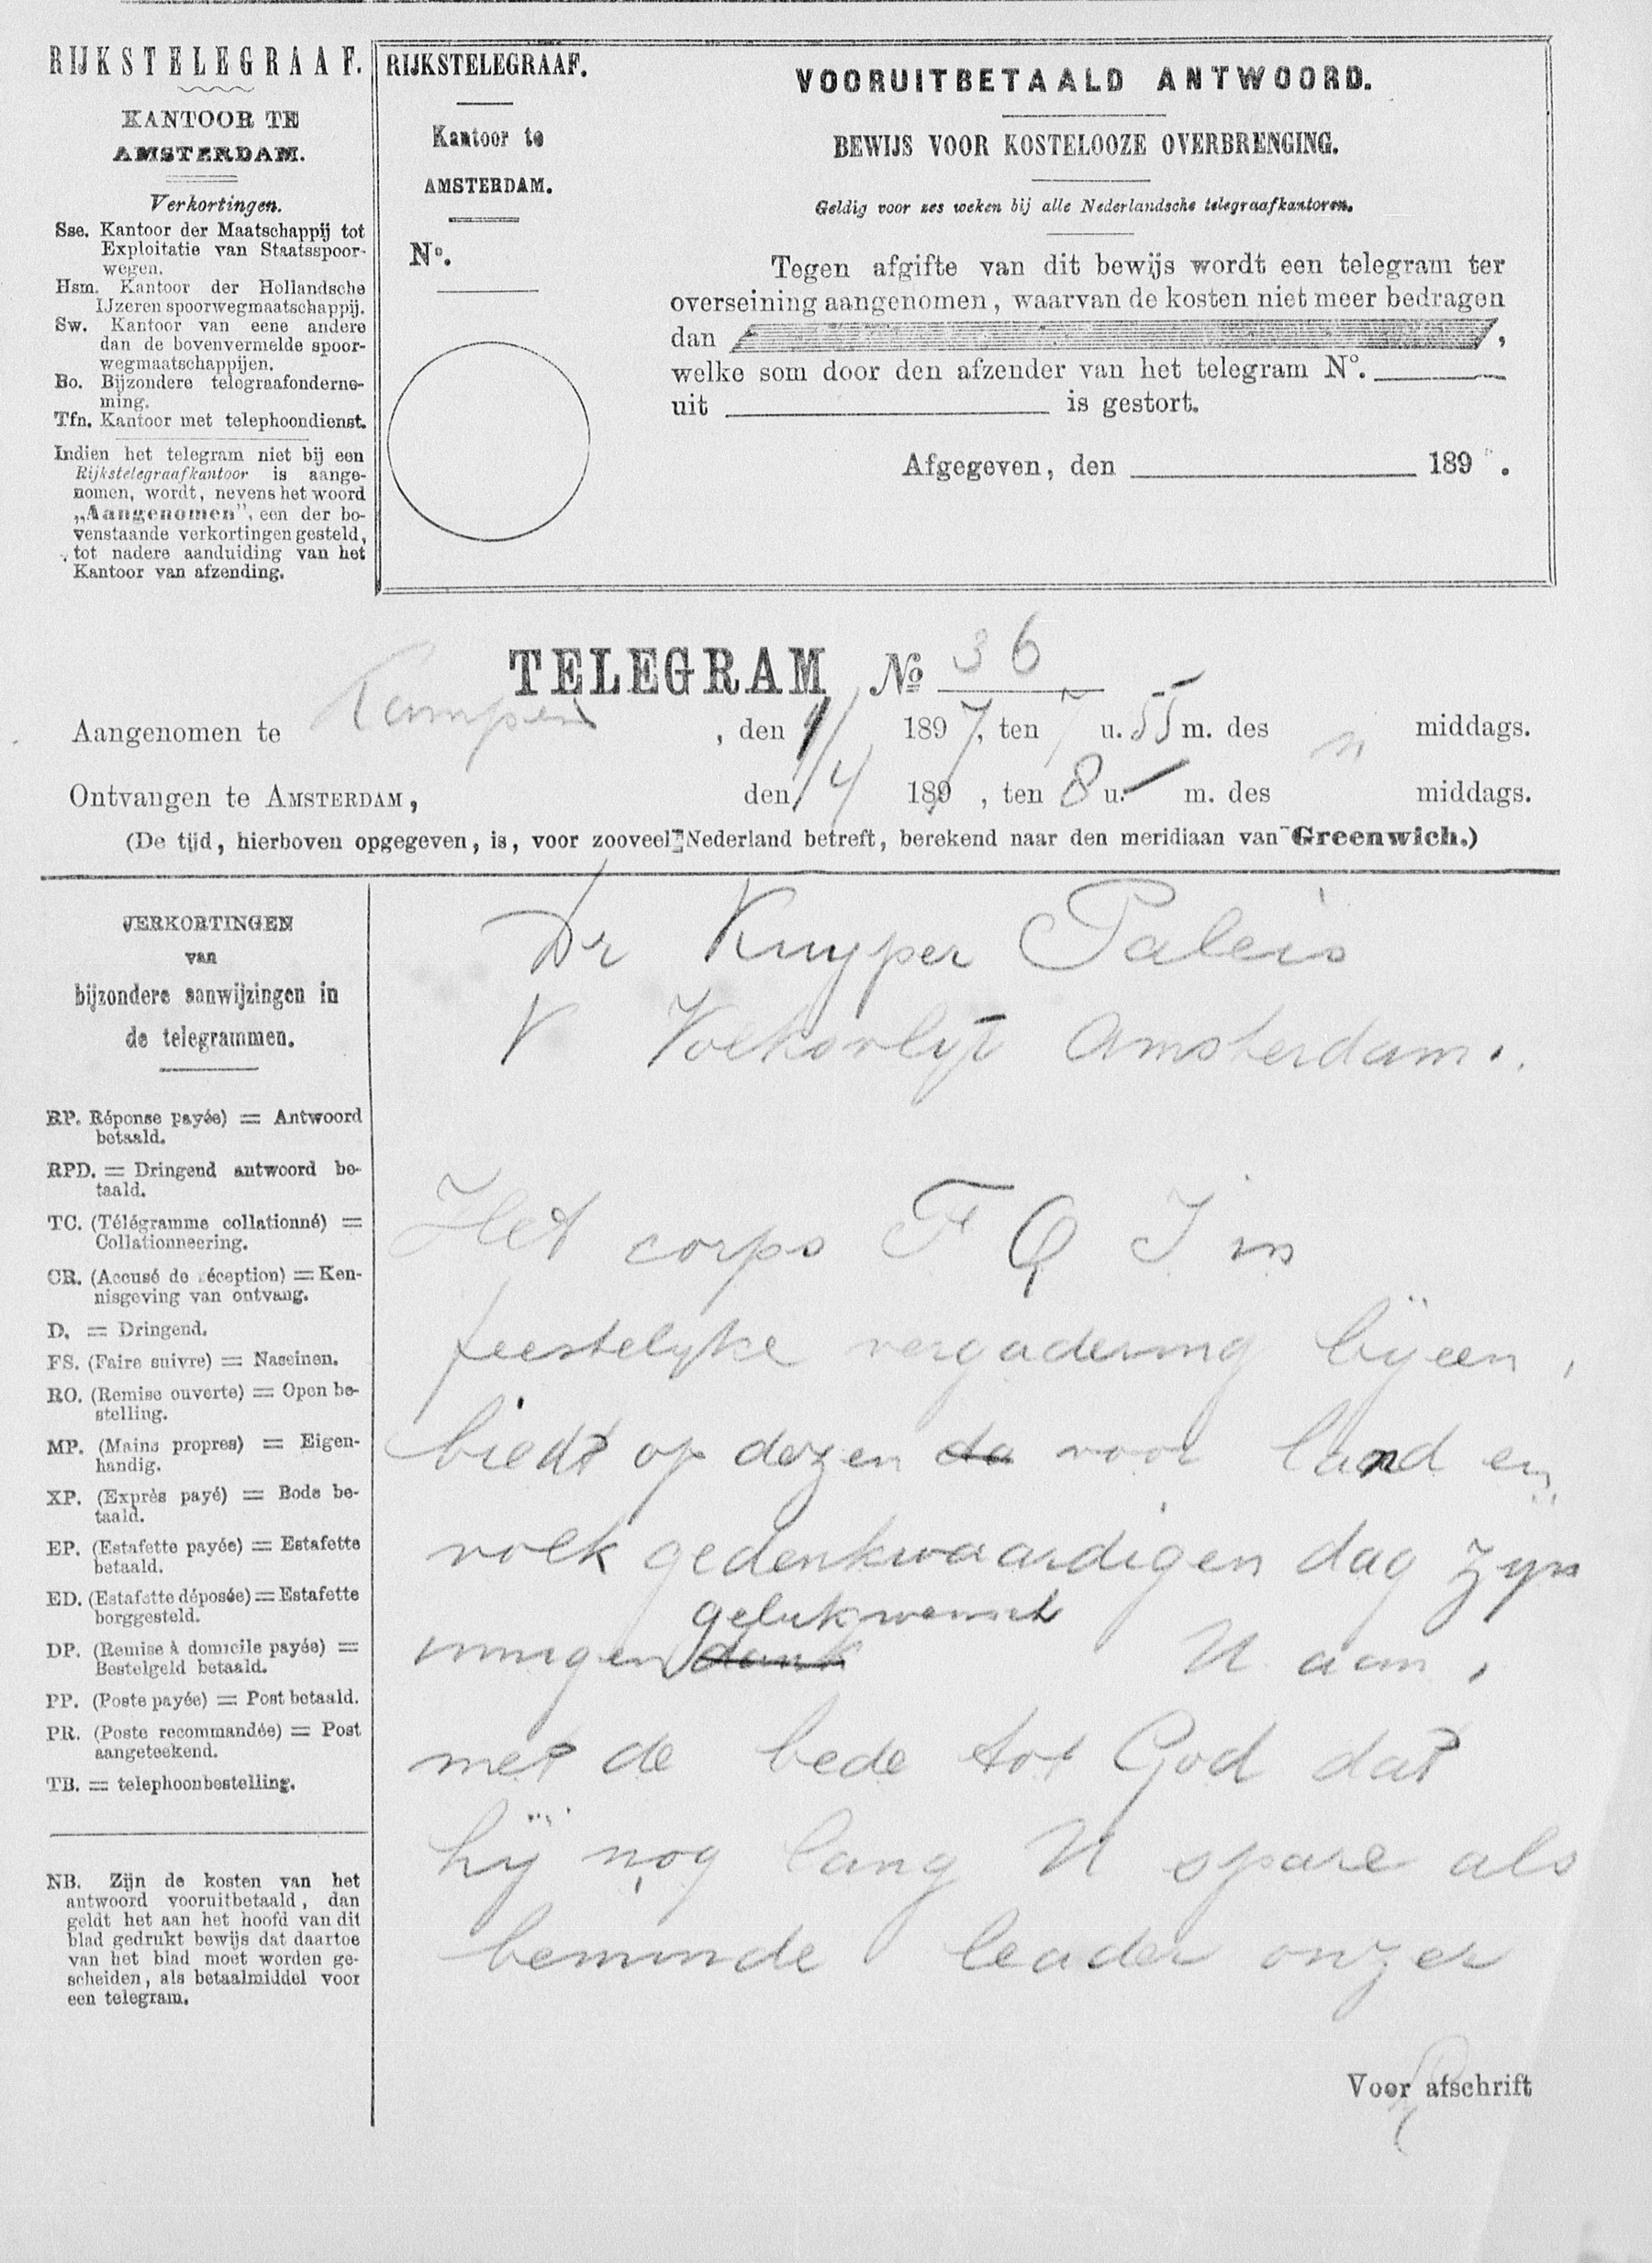 RIJKSTELEGRAAF.
KANTOOR TE
AMSTERDAM.
Verkortingen.
Sse. Kantoor der Maatschappij tot
Exploitatie van Staatsspoor-
wegen.
Hsm. Kantoor der Hollandsche
IJzeren spoorwegmaatschappij.
Sw. Kantoor van eene andere
dan de bovenvermelde spoor-
wegmaatschappijen.
Bo. Bijzondere telegraafonderne-
ming.
Tfn. Kantoor met telephoondienst.
Indien het telegram niet bij een
Rijkstelegraafkantoor is aange-
nomen, wordt, nevens het woord
„Aangenomen", een der bo-
venstaande verkortingen gesteld,
tot nadere aanduiding van het
Kantoor van afzending.
RIJKSTELEGRAAF.
Kantoor te
AMSTERDAM.
No.
VOORUITBETAALD ANTWOORD.
BEWIJS VOOR KOSTELOOZE OVERBRENGING.
Geldig voor zes weken bij alle Nederlandsche telegraafkantoren.
Tegen afgifte van dit bewijs wordt een telegram ter
overseining aangenomen, waarvan de kosten niet meer bedragen
dan ,
welke som door den afzender van het telegram No.
uit is gestort.
Afgegeven, den 189 .
TELEGRAM No 36
Aangenomen te Kampen, den 1/ 1897, ten 7 u. 55 m. des n middags.
Ontvangen te AMSTERDAM, den 1/4 189 , ten 8 u. m. des middags.
(De tijd, hierboven opgegeven, is, voor zooveel Nederland betreft, berekend naar den meridiaan van Greenwich.)
VERKORTINGEN
van
bijzondere aanwijzingen in
de telegrammen.
RP. Réponse payée) = Antwoord
betaald.
RPD. = Dringend antwoord be-
taald.
TC. (Télégramme collationné) =
Collationneering.
CR. (Accusé de réception) = Ken-
nisgeving van ontvang.
D. = Dringend.
FS. (Faire suivre) = Naseinen.
RO. (Remise ouverte) = Open be-
stelling.
MP. (Mains propres) = Eigen-
handig.
XP. (Exprès payé) = Bode be-
taald.
EP. (Estafette payée) = Estafette
betaald.
ED. (Estafette déposée) = Estafette
borggesteld.
DP. (Remise à domicile payée) =
Bestelgeld betaald.
PP. (Poste payée) = Post betaald.
PR. (Poste recommandée) = Post
aangeteekend.
TB. = telephoonbestelling.
NB. Zijn de kosten van het
antwoord vooruitbetaald, dan
geldt het aan het hoofd van dit
blad gedrukt bewijs dat daartoe
van het blad moet worden ge-
scheiden, als betaalmiddel voor
een telegram.
Dr Kuyper Paleis
V Volksvlijt Amsterdam.
Het corps F Q I in
feestelyke vergadering bijeen,
biedt op dezen da voor land en
volk gedenkwaardigen dag zyn
gelukwensch
innigen dank U aan,
met de bede tot God dat
hij nog lang U spare als
beminde leader onzer
Voor afschrift